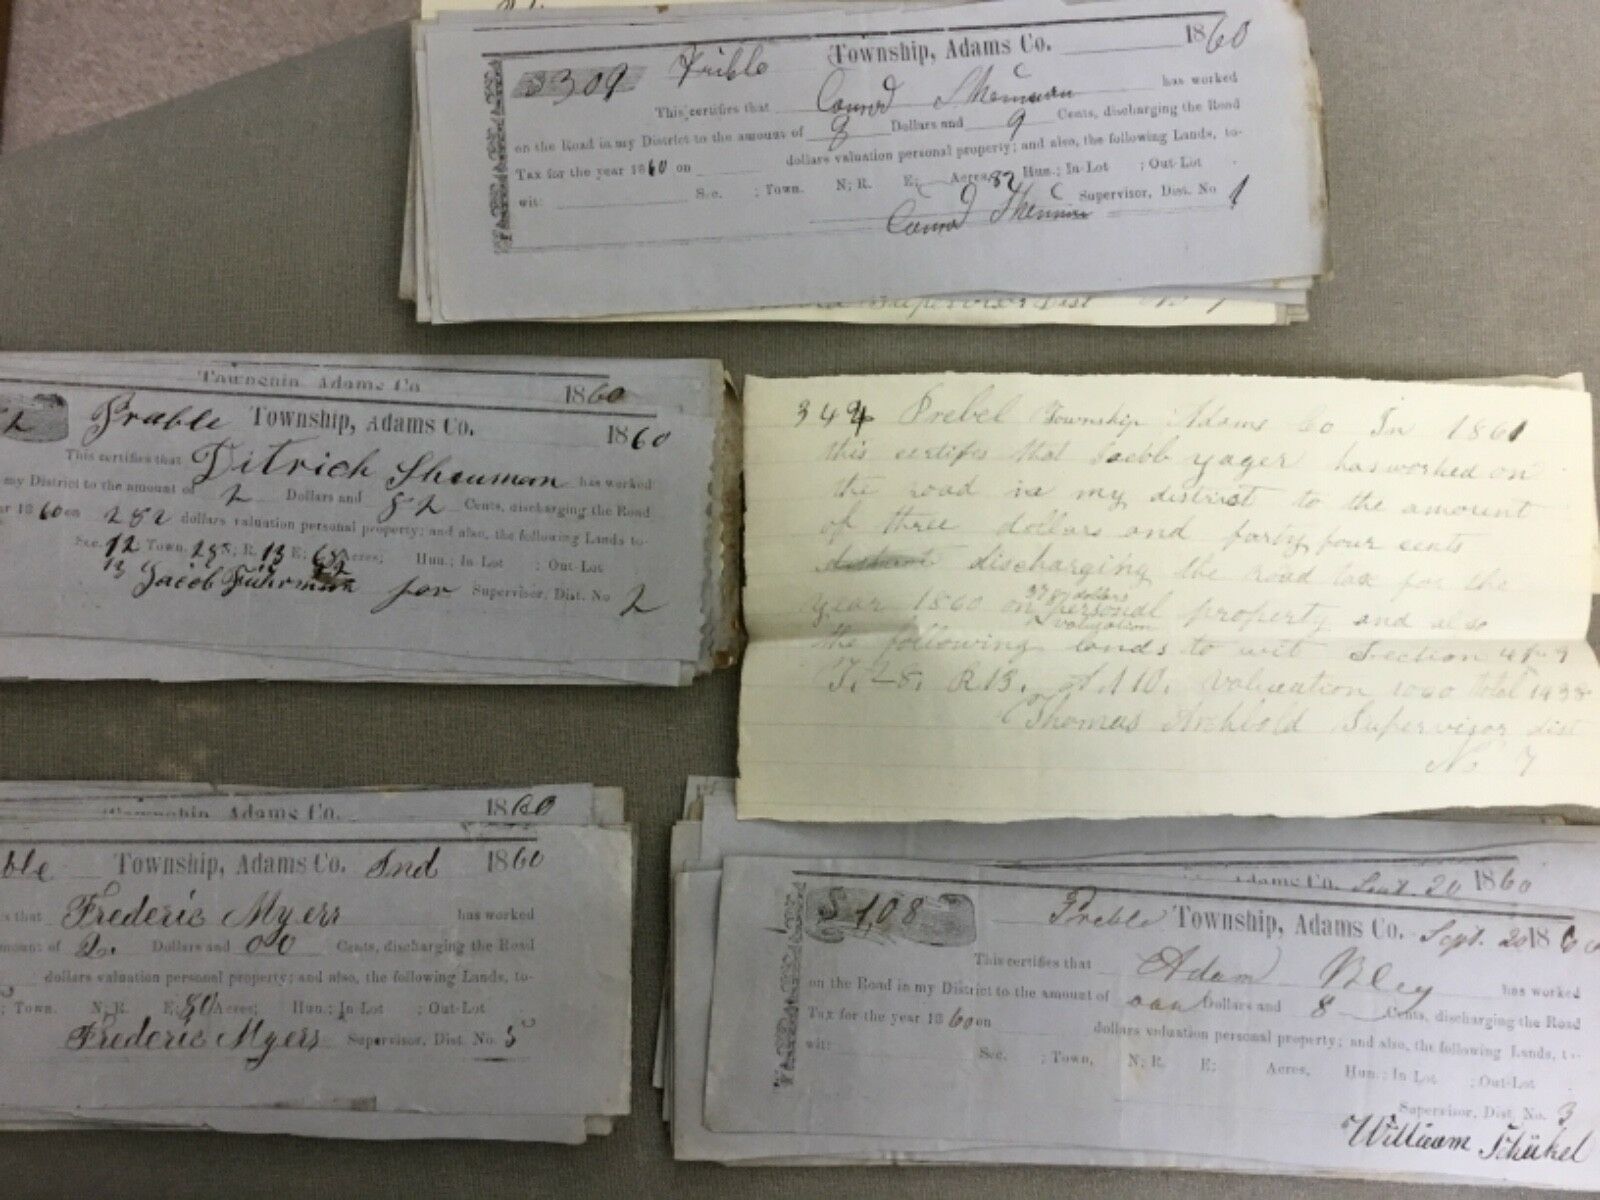 $3 09 Township, Adams Co. 1860
This certifies that Conrod has worked
on the Road in my District to the amount of Dollars and 9 Cents, discharging the Road
Tax for the year 1860 on dollars valuation personal property; and also, the following Lands, to-
wit: Sec. ; Town. N; R. E; Acres, 82 Hun.; In-Lot ; Out-Lot
Conrod Supervisor, Dist. No 1
Supervisor Dist No 7
Township Adams Co 1860
2 Township, Adams Co. 1860
This certifies that Ditrich Sheuman has worked
my District to the amount of 2 Dollars and 82 Cents, discharging the Road
ar 1860 on 282 dollars valuation personal property; and also, the following Lands to-
Sec. 12 Town. 28 N; R. 13 E; Acres; Hun.; In-Lot ; Out-Lot
13 Jacob Fuhrman for Supervisor, Dist. No 2
344 Prebel Township Adams Co In 1861
this certifes that Jacobb yager has worked on
the road in my district to the amount
of three dollars and forty four cents
discharging the road tax for the
year 1860 on 378 dollars personal property and also
valuation
the following lands to wit Section 4 & 9
T. 28. R 13. A 110. valuation 1060 total 1438
Thomas Archbold Supervisor dist
No 7
Township Adams Co. 1860
ble Township, Adams Co. Ind 1860
s that Frederic Myers has worked
mount of 2. Dollars and 00 Cents, discharging the Road
dollars valuation personal property; and also, the following Lands, to-
; Town. N; R. E; 80 Acres; Hun.; In-Lot ; Out-Lot
Frederic Myers Supervisor, Dist. No. 5
Adams Co. Sept. 20 1860
$1,08 Preble Township, Adams Co. Sept. 20 1860
This certifies that Adam Bley has worked
on the Road in my District to the amount of Dollars and 8 Cents, discharging the Road
Tax for the year 1860 on dollars valuation personal property; and also, the following Lands, to-
wit: Sec. ; Town, N; R. E; Acres, Hun.; In Lot ; Out-Lot
Supervisor, Dist. No. 3
William Schükel